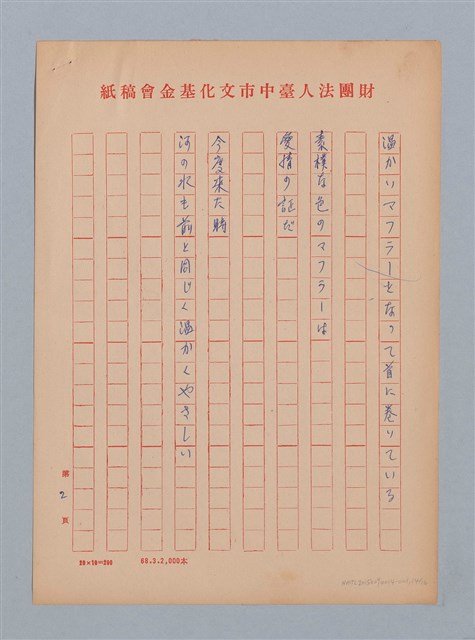 財團法人臺中市文化基金會稿紙
温かいマフラーとなって首に巻いている
素樸な色のマフラーは
愛情の証だ
今度来た時
河の水も前と同じく温かくやさしい
第2頁
20×10=200
88.3.2,000本